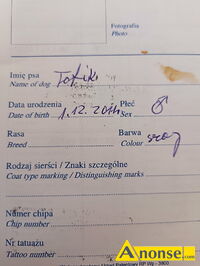 Fotografia
Photo
Imię psa
Name of dog
Tofik
Data urodzenia
Date of birth
1.12.2014
Płeć
Sex ♂
Rasa
Breed
Barwa
Colour
szary
Rodzaj sierści / Znaki szczególne
Coat type marking / Distinguishing marks
Numer chipa
Chip number
Nr tatuażu
Tattoo number
Anonse.com